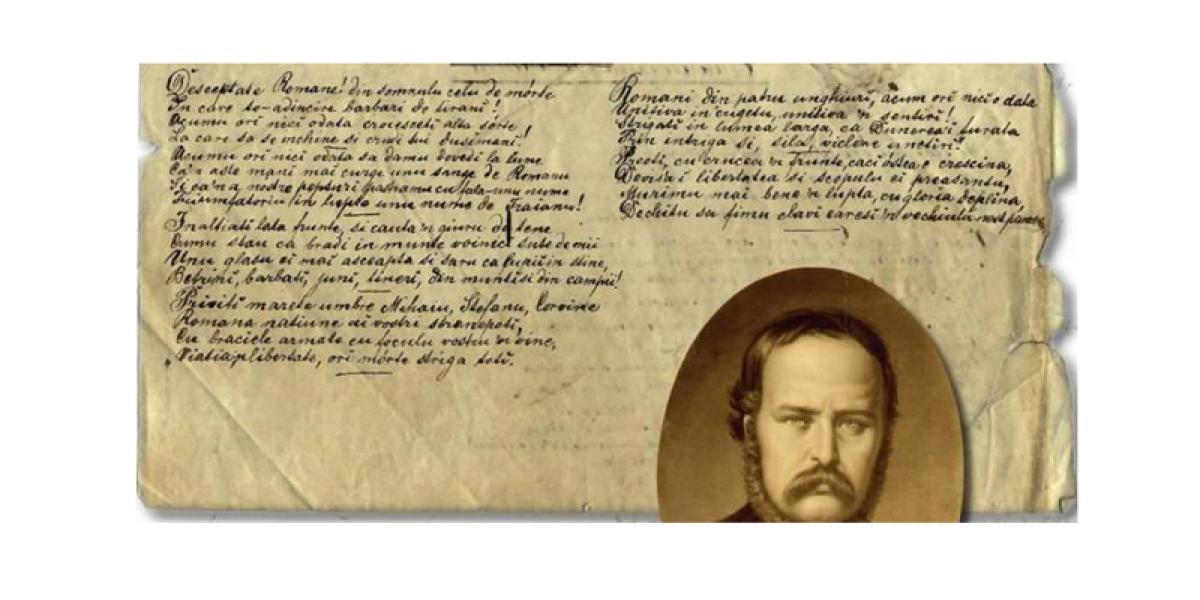 Desceptate Romane! din somnulu celu de mórte
In care te-adincire barbari de tirani!
Acumu ori nici odata croiesceti alta sórte
La care sa se inchine si crudii tui dusimani!
Acumu ori nici odata sa damu dovedi la lume
Ca'n aste mani mai curge unu sange de Romanu
Si ca'n a nostre pepturi pastramu cu fala-unu nume
Triumfatoriu in lupte unu nume de Traianu!
Inaltiati lata frunte, si cauta'n giuru de tene
Cumu stau ca bradi in munte voinici sute de mii
Unu glasu ei mai asceapta si saru ca lupii in stine,
Betrini, barbati, juni, tineri, din munti si din campii!
Priviti marete umbre Mihaiu, Stefanu, Corvine
Romana natiune ai vostri stranepoti,
Cu braciele armate cu foculu vostru'n vine,
"Viatia'n libertate, ori mórte striga toti.
Romani din patru unghiuri, acum ori nici o data
Uniti-va in cugetu, uniti-va'n sentiri!
Strigati in lumea larga, ca Dunerea-i furata
Prin intriga si, sila, viclene unetiri!
Preoti, cu crucea'n frunte, caci óstea e crescina,
Devisa-i libertatea si scopulu ei preasantu,
Murimu mai bene'n lupta, cu gloria deplina,
Dechitu sa fimu sclavi earesi'n vechiulu nost